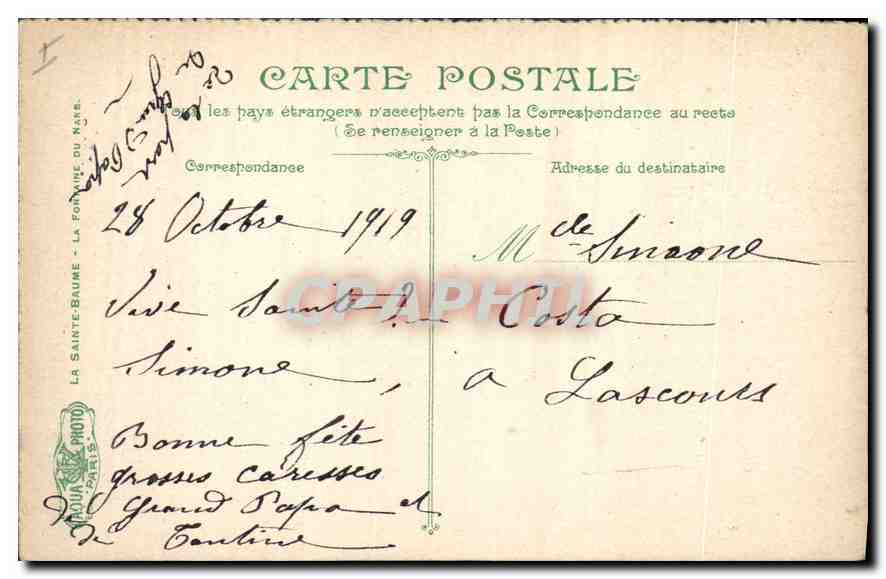 I
De la part
de Grand Papa
CARTE POSTALE
Tous les pays étrangers n'acceptent pas la Correspondance au recto
(Se renseigner à la Poste)
Correspondance
Adresse du destinataire
28 Octobre 1919
Vive Sainte
Simone,
Bonne fête
grosses caresses
de Grand Papa et
de Tantine
Mcle Simone
Costa
a Lascours
CPAPHIL
LA SAINTE-BAUME - LA FONTAINE DU NANS.
AQUA PHOTO
PARIS